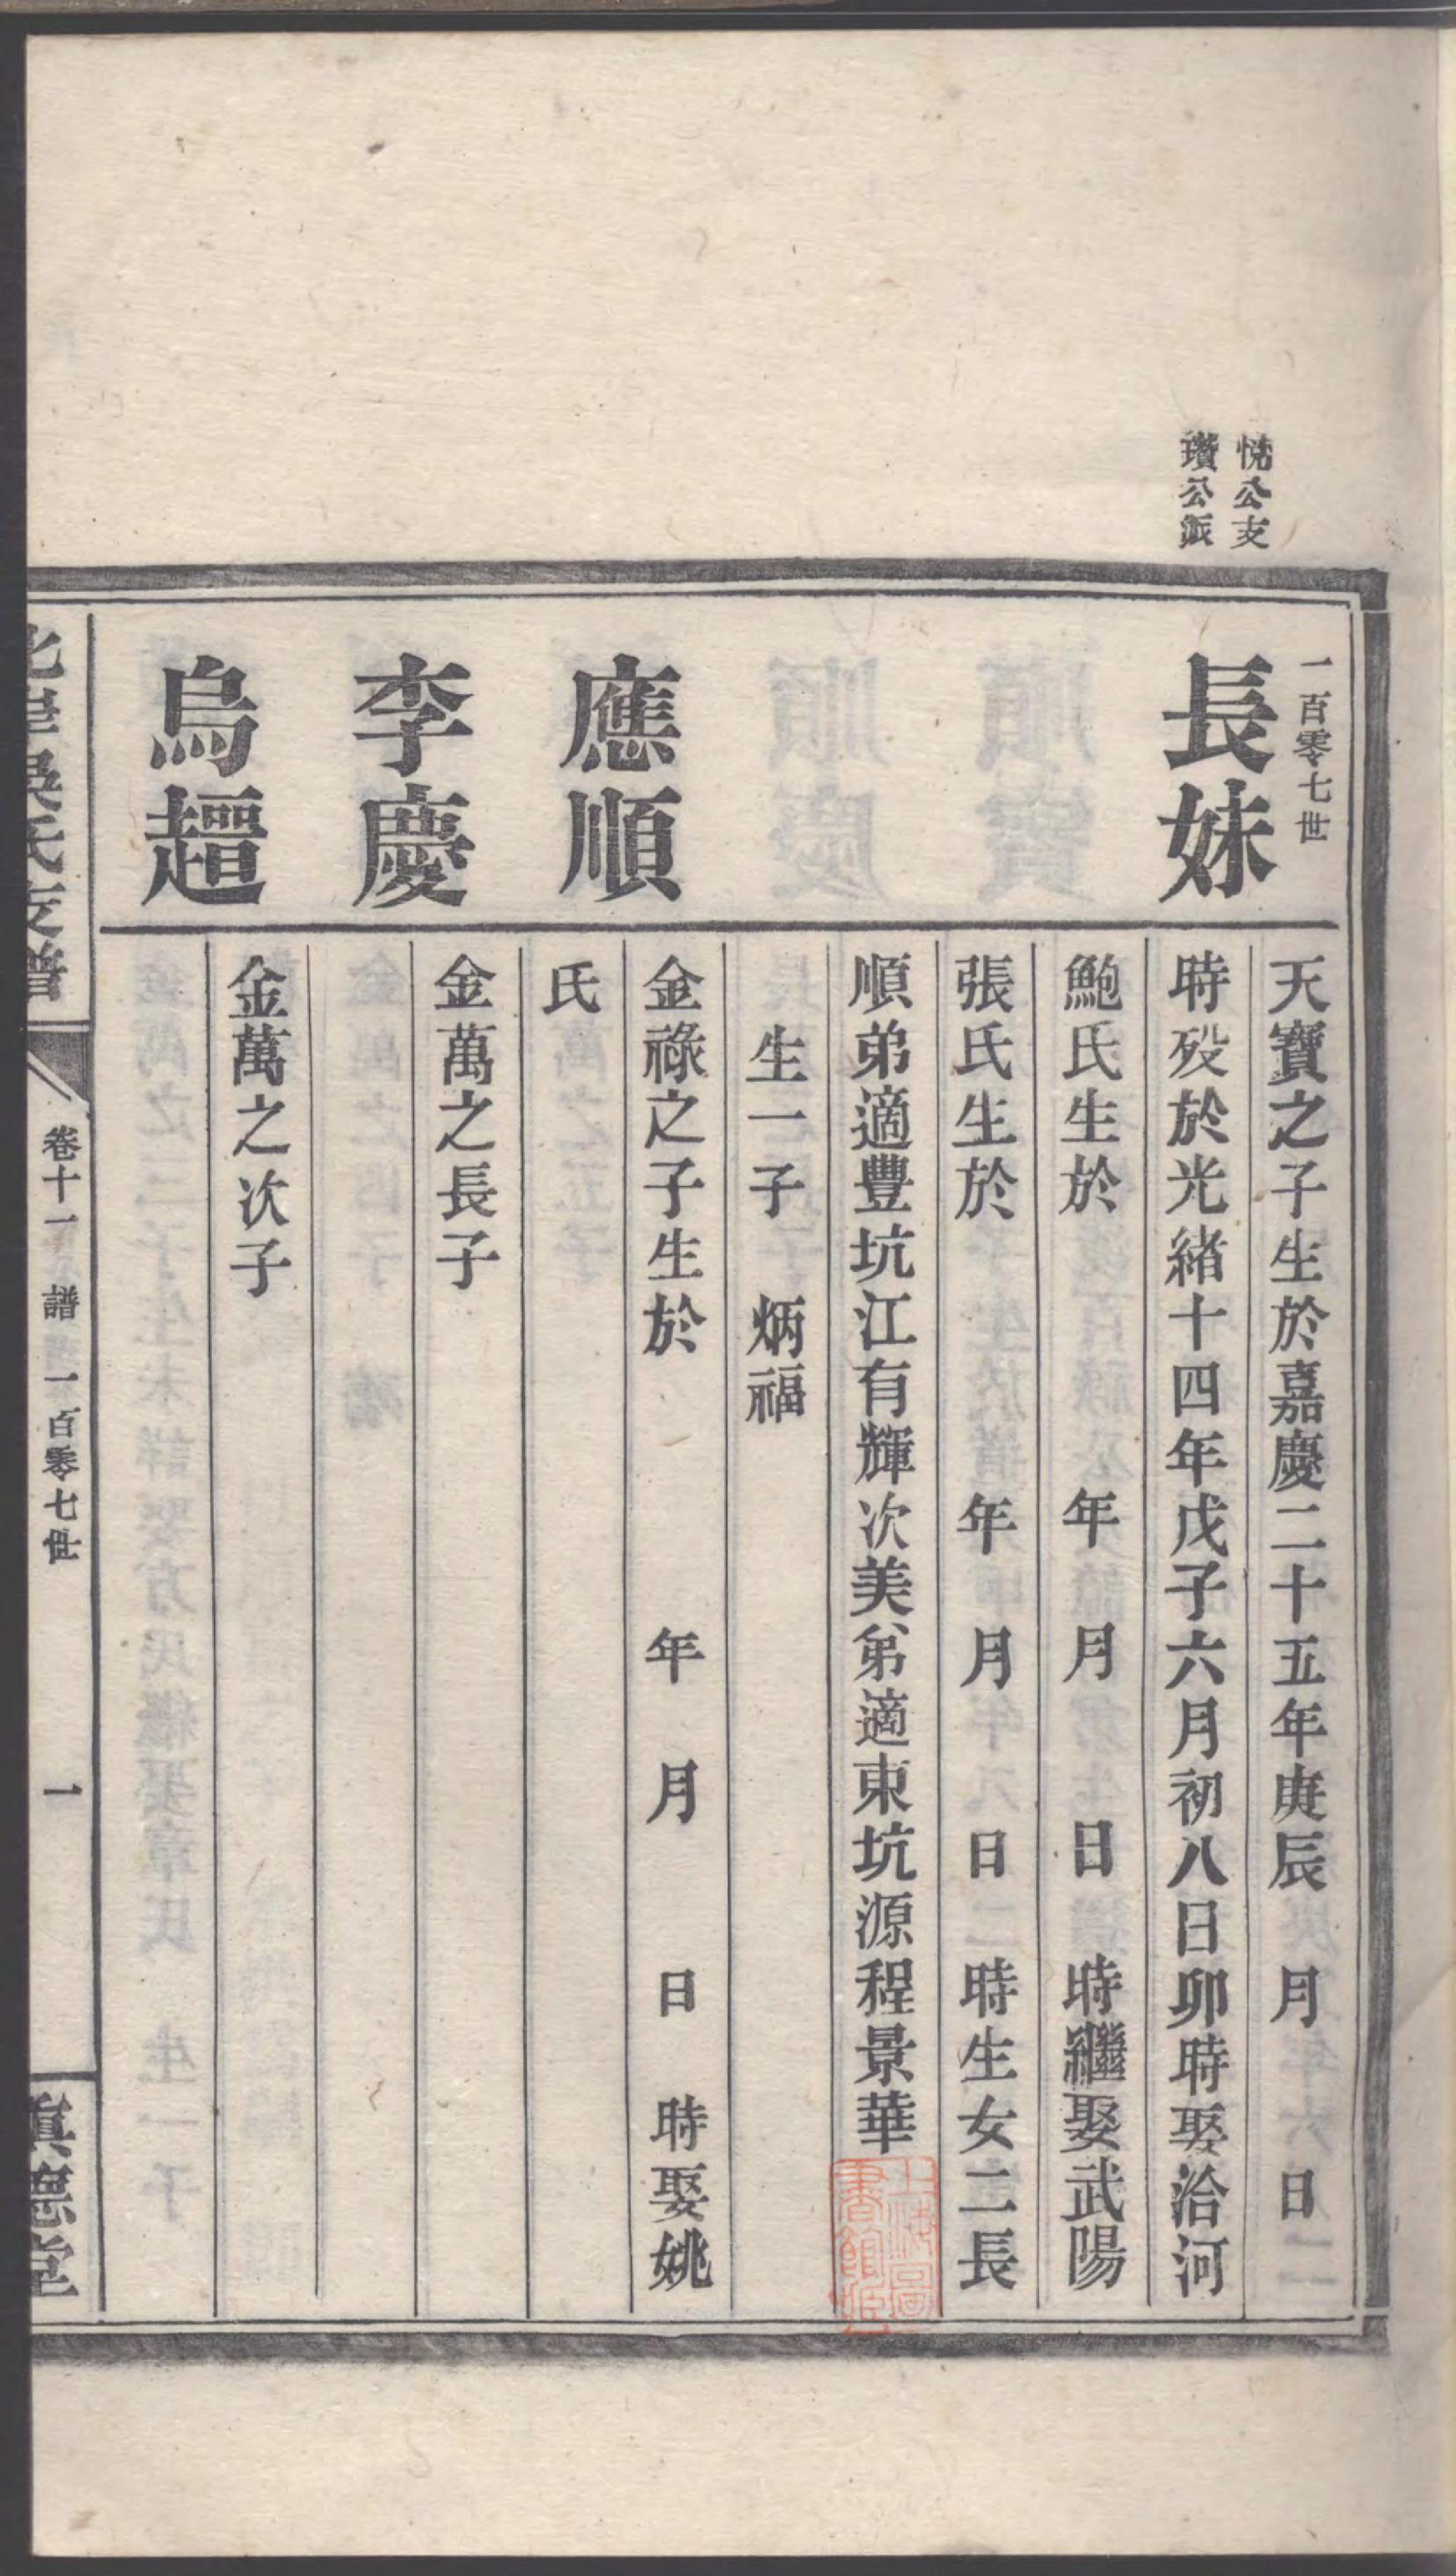 悅公支
瓚公派
一百零七世
長妹
天寶之子生於嘉慶二十五年庚辰　月　日
時殁於光緒十四年戊子六月初八日卯時娶洽河
鮑氏生於　年　月　日　時繼娶武陽
張氏生於　年　月　日　時生女二長
順弟適豐坑江有輝次美弟適東坑源程景華
生一子　炳福
應順
金祿之子生於　年　月　日　時娶姚
氏
李慶
金萬之長子
烏䞴
金萬之次子
北岸吳氏支譜
卷十一　譜　一百零七世　一
慎德堂